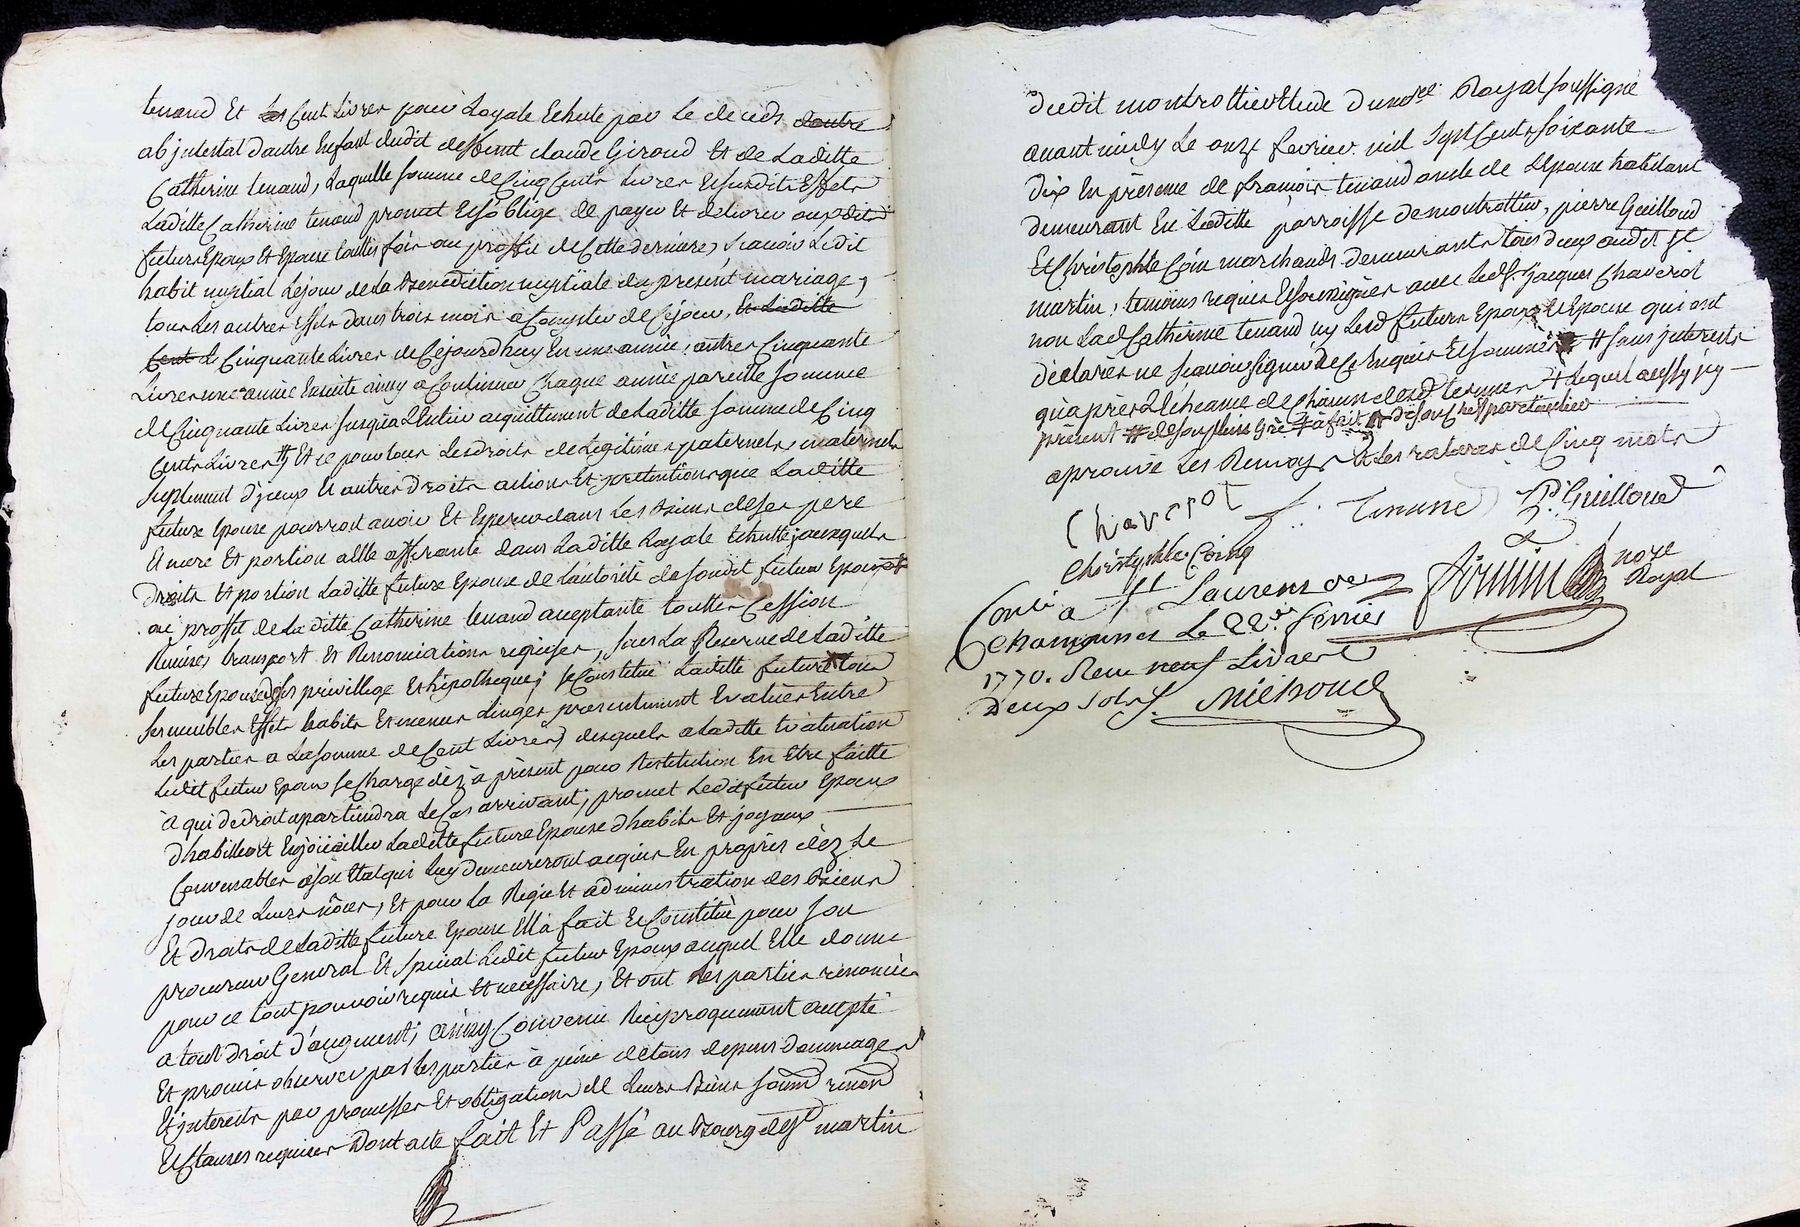 tenand Et les Cent Livres pour Loyale Echute par Le deceds d'autre
abjntestat dautre Enfant dudit deffunt claude Giroud Et de Laditte
Catherine tenand, Laquelle somme de Cinq Cents Livres Et susdits Effets
Laditte Catherine tenand promet Et s'oblige de payer Et delivrer auxdits
futurs Epoux Et Epouse touttes fois au proffit de Cette derniere, scavoir Ledit
habit nuptial Lejour de La Benediction nuptiale du present mariage,
tous Les autres Effets dans trois mois a Compter de Cejour, Et Laditte
Cent Le Cinquante Livres de Cejourdhuy En une année, autres Cinquante
Livres une année Ensuite ainsy a Continuer Chaque année pareille somme
de Cinquante Livres jusqua LEntier acquittement de Laditte somme de Cinq
Cents Livres # Et ce pour tous Les droits de Legitimes paternels, maternels
suplement d'jceux Et autres droits actions Et pretentions que Laditte
future Epouse pourroit avoir Et Esperer dans Les Biens de ses pere
Et mere Et portion a Elle afferante dans Laditte Loyale Echutte; auxquels
Droits Et portion Laditte future Epouse de Lautorité dudit futur Epoux fait
au proffit de Laditte Catherine tenand acceptante touttes Cession
Remises transport Et Renonciations requises, sous La Reserve de Laditte
future Epouse des privillege Et hipotheque; se Constitue Laditte future tous
ses meubles Effets habits Et menus Linges presentement Evalués Entre
Les parties a La somme de Cent Livres, desquels a Laditte Evaluation
Ledit futur Epoux se Charge dèz à présent pour Restitution En Etre faitte
à qui de droit apartiendra Le Cas arrivant; promet Ledit futur Epoux
d'habiller Et Enjoüailler Laditte future Epouse d'habits Et joyaux
Convenables à son Etat qui Luy demeureront acquis En propres dèz Le
jour de Leurs nôces, Et pour La Regie Et administration des Biens
Et droits de Laditte future Epouse Ella fait Et Constitüé pour son
procureur General Et special Ledit futur Epoux auquel Elle donne
pour ce tout pouvoir requis Et necessaire, Et ont Les parties renoncées
a tout droit d'augment; ainsy Convenu Reciproquement accepté
Et promis observer par Les parties à peine de tous depens dommages
Et jnterets par promesses Et obligations de Leurs Biens soumis renon
Et Clauses requises Dont acte fait Et Passé au Bourg de St martin
dudit montrottier Etude dunore Royal soussigné
avant midy Le onze fevrier mil sept Cents soixante
dix En présence de francois tenand oncle de LEpouse habitant
demeurant En Laditte parroisse de montrottier, pierre Guilloud
Et Christophle Coin marchands demeurants tous deux audit St
martin, temoins requis Et soussignés avec Led. Sr jacques Chaverot
non Lad Catherine tenand ny Lesd futurs Epoux Et Epouse qui ont
déclarés ne scavoir signer de Ce Enquis Et sommés # sans jnterets
qu'après LEcheance de Chacun desd termes + Lequel aussy jcy
présent # de son plein Gré + à fait # de son Chef particulier
aprouvé Les Renvoys Et Les ratures de Cinq mots
Chaverot f. Tenand P. Guilloud
Christophle Coing
Conlé a St Laurent de
Chamousset Le 22e. fevrier
1770. Recu neuf Livres
Deux sols. Michoud
nore
Royal